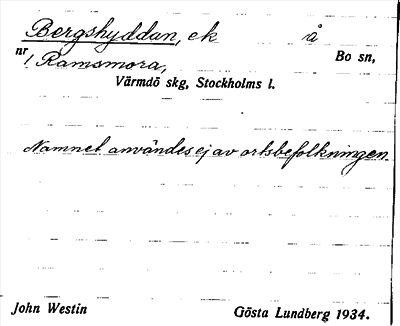 Bergshyddan, ek å
nr 1 Ramsmora, Bo sn,
Värmdö skg, Stockholms l.
Namnet användes ej av ortsbefolkningen.
John Westin Gösta Lundberg 1934.